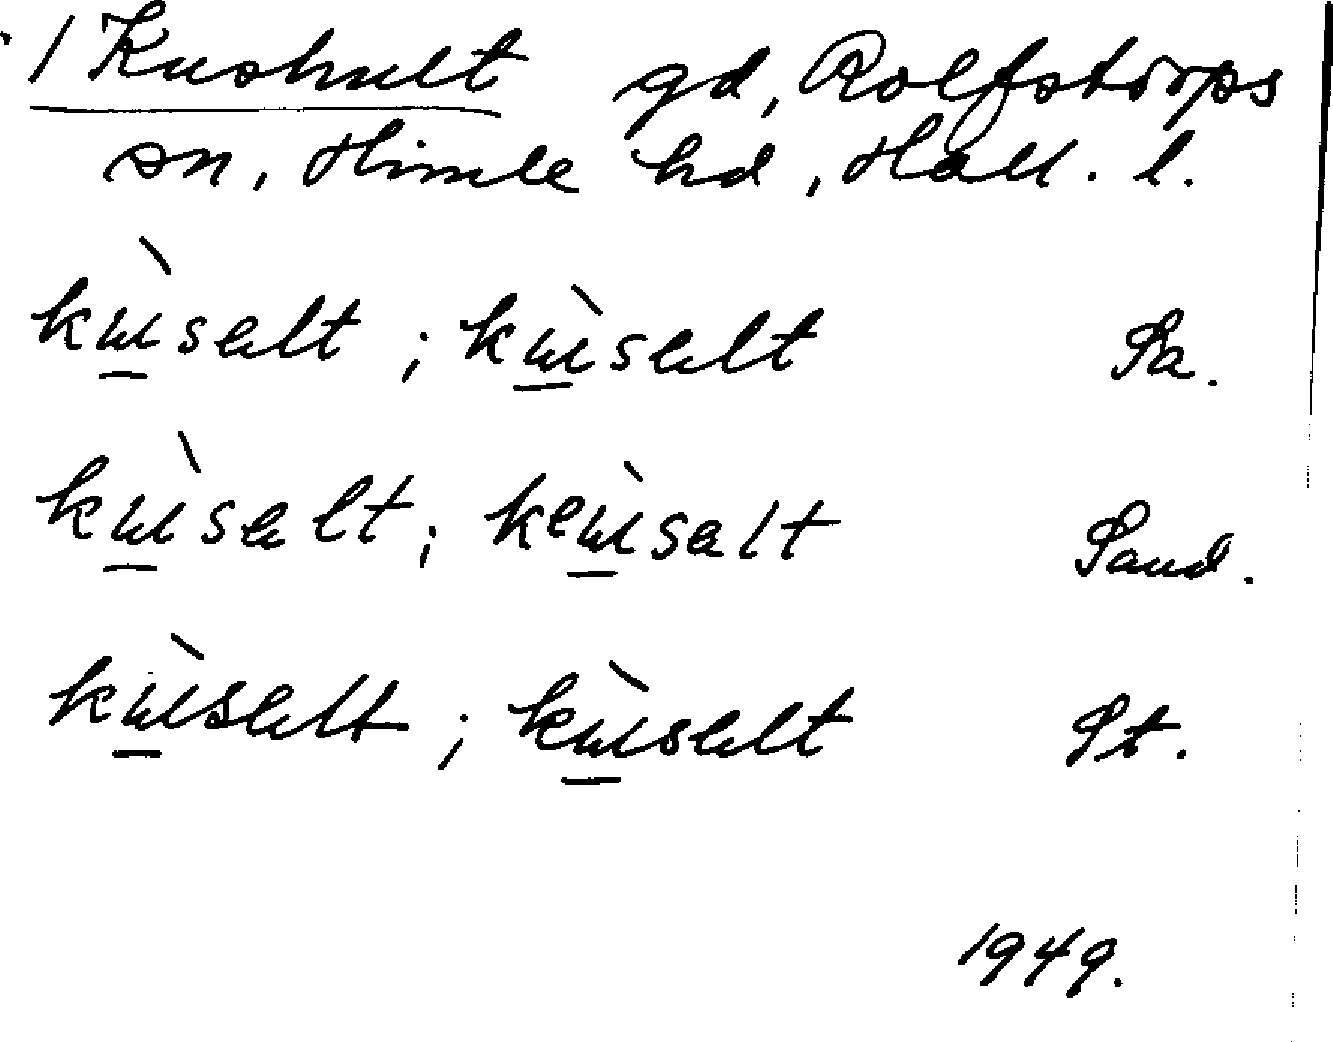 / Kushult gd, Rolfstorps
sn, Himle hd, Hall. l.
kɯ̲̀salt ; kɯ̲̀salt Sa.
kɯ̲̀salt ; keɯ̲̀salt Sand.
kɯ̲̀salt ; kɯ̲̀salt St.
1949.